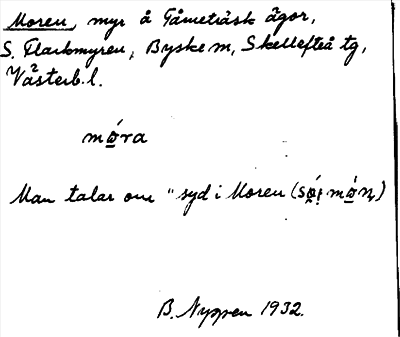 Moren, myr å Tåmeträsk ägor,
S. Flarkmyren, Byske m, Skellefteå tg,
Västerb. l.
mo̲ra
Man talar om "syd i Moren (
B. Nyppen 1932.